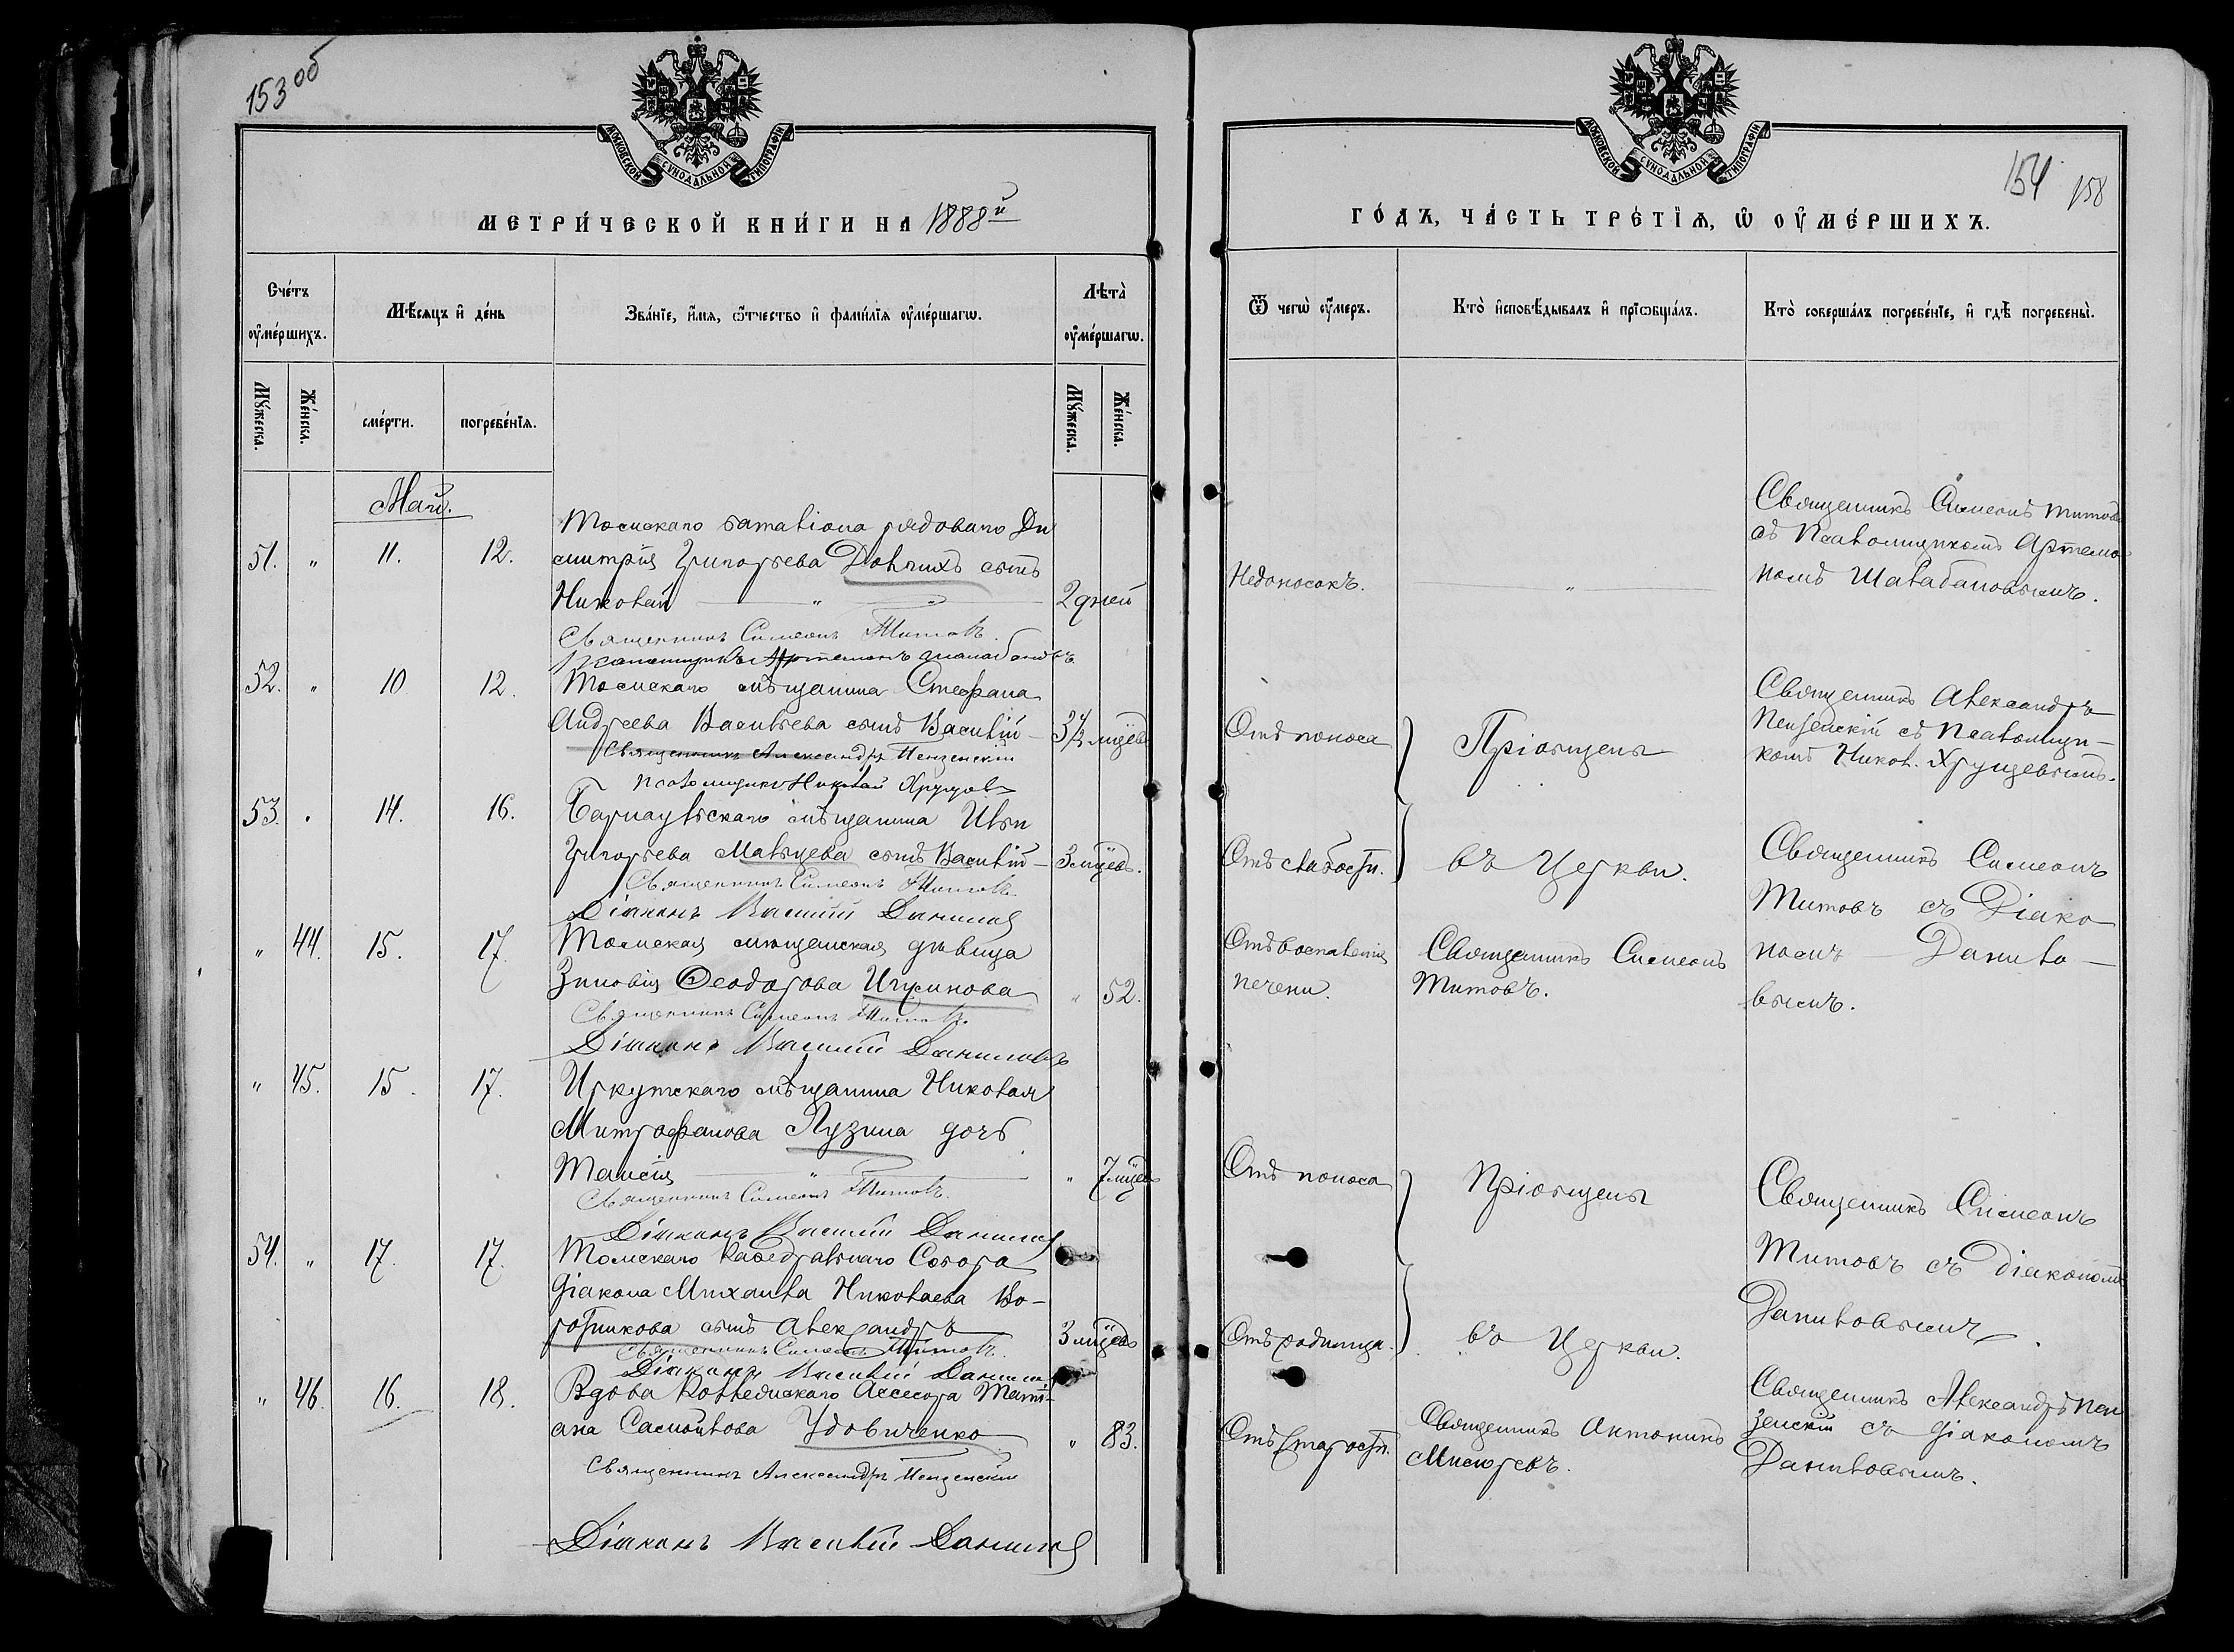 153 об
МОСКОВСКОЙ СѴНОДАЛЬНОЙ ТИПОГРАФІИ
МЕТРИ́ЧЕСКОЙ КНИ́ГИ НА 1888й
Сче́тъ оу҆ме́ршихъ.
Мѣ́сяцъ и҆ де́нь
Зва́нїе, и҆́мя, ѻ҆́тчество и҆ фами́лїя оу҆ме́ршагѡ.
Лѣта̀ оу҆ме́ршагѡ.
Мꙋ́жеска.
Же́нска.
сме́рти.
погребе́нїя.
Мꙋ́жеска.
Же́нска.
Май.
51. " 11. 12.
Томскаго баталіона рядоваго Ди
митрія Григорьева Долгихъ сынъ
Николай — " — " — 2 дней
Священникъ Симеонъ Титовъ.
Псаломщикъ Артемонъ Шалабановъ
52. " 10. 12.
Томскаго мѣщанина Стефана
Андреева Васильева сынъ Василій — 3½ мцевъ
Священникъ Александръ Пензенскій
Псаломщикъ Николай Хрущовъ
53. " 14. 16.
Барнаульскаго мѣщанина Ильи
Григорьева Мальцева сынъ Василій — 3 мцевъ.
Священникъ Симеонъ Титовъ.
Діаконъ Василій Даниловъ
" 44. 15. 17.
Томская мѣщанская дѣвица
Зиновія Ѳеодорова Игумнова " 52.
Священникъ Симеонъ Титовъ.
Діаконъ Василій Даниловъ
" 45. 15. 17.
Иркутскаго мѣщанина Николая
Митрофанова Лузина дочь
Таисія — " — " 7 мцевъ
Священникъ Симеонъ Титовъ.
Діаконъ Василій Даниловъ
54. " 17. 17.
Томскаго Каѳедральнаго Собора
діакона Михаила Николаева Во-
ротникова сынъ Александръ 3 мцевъ
Священникъ Симеонъ Титовъ.
Діаконъ Василій Даниловъ
" 46. 16. 18.
Вдова Коллежскаго Ассесора Тати-
ана Самойлова Удовиченко " 83.
Священникъ Александръ Пензенскій
Діаконъ Василій Даниловъ
МОСКОВСКОЙ СѴНОДАЛЬНОЙ ТИПОГРАФІИ
154 158
ГО́ДЪ, ЧА́СТЬ ТРЕ́ТЇЯ, Ѡ҆ ОУ҆МЕ́РШИХЪ.
Ѿ чегѡ̀ оу҆́меръ.
Кто̀ и҆сповѣ́дывалъ и҆ прїѡбща́лъ.
Кто̀ соверша́лъ погребе́нїе, и҆ гдѣ̀ погребены̀.
Недоносокъ. — " —
Священникъ Симеонъ Титовъ
съ Псаломщикомъ Артемо
номъ Шалабановымъ.
Отъ поноса
Пріобщены
Священникъ Александръ
Пензенскій съ Псаломщи-
комъ Никол. Хрущевымъ.
Отъ слабости.
въ Церкви.
Священникъ Симеонъ
Титовъ съ Діако
номъ Данило-
вымъ.
Отъ воспаленія
печени.
Священникъ Симеонъ
Титовъ.
Отъ поноса
Пріобщены
Священникъ Симеонъ
Титовъ съ діакономъ
Даниловымъ.
Отъ родимца.
въ Церкви.
Отъ старости.
Священникъ Антонинъ
Мисюревъ.
Священникъ Александръ Пен
зенскій съ діакономъ
Даниловымъ.